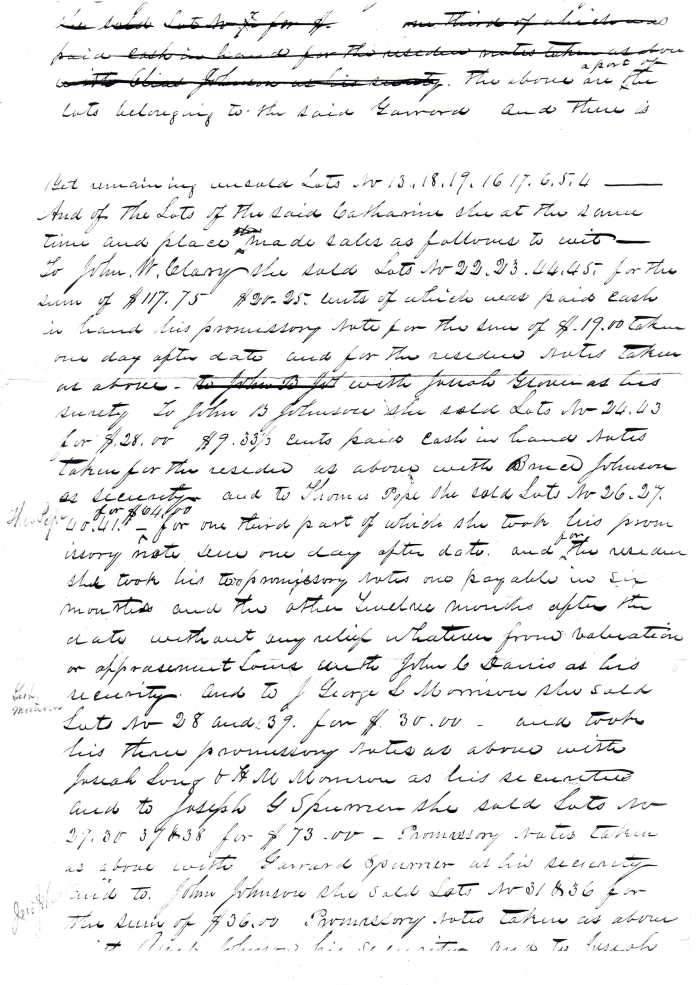 she sold Lots No for $. one third of which was
paid cash in hand for the residue notes taken as above
with Johnson as his security. the above are a part of the
lots belonging to the said Garrard And there is
Yet remaining unsold Lots No 13.18.19.16 17.6.5.4
And of the Lots of the said Catharine she at the same
time and place made sales as follows to wit
To John. W. Clary she sold Lots No 22.23.44.45. for the
sum of $117.75 $20-25. cents of which was paid cash
in hand his promissory note for the sum of $.19.00 taken
one day after date and for the residue Notes taken
as above - to John B Joh with Josiah as his
surety To John B Johnson she sold Lots No 24.43
for $.28.00 $9.33⅓ cents paid cash in hand Notes
taken for the residue as above with Johnson
as security and to Thomas Pope she sold Lots No 26.27.
Pope
40.41. for $64.00 - for one third part of which she took his prom
issory note due one day after date. and for the residue
she took his two promissory Notes one payable in six
months and the other Twelve months after the
date without any relief whatever from valuation
or apprasement Laws with John C Davis as his
security. And to J George L Morrison she sold
Lots No 28 and 39. for $. 30.00 - and took
his three promissory Notes as above with
Josiah Long & H M Monroe as his securities
and to Joseph G Spurrier she sold Lots No
27.30 37&38 for $73.00 - Promissory Notes taken
as above with Garrard Spurrier as his security
and to. John Johnson she sold Lots No 31 & 36 for
the sum of $36.00 Promissory Notes taken as above
with Johnson his security and to Josiah